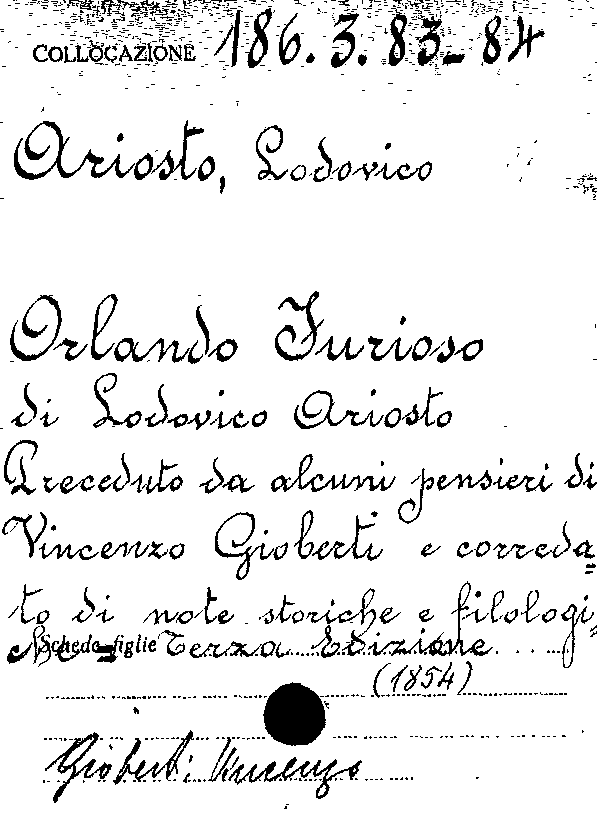 COLLOCAZIONE 186.3.83-84
Ariosto, Lodovico
Orlando Furioso
di Lodovico Ariosto
Preceduto da alcuni pensieri di
Vincenzo Gioberti e correda=
to di note storiche e filologi=
che = Terza Edizione
Schede figlie
(1854)
Gioberti Vincenzo